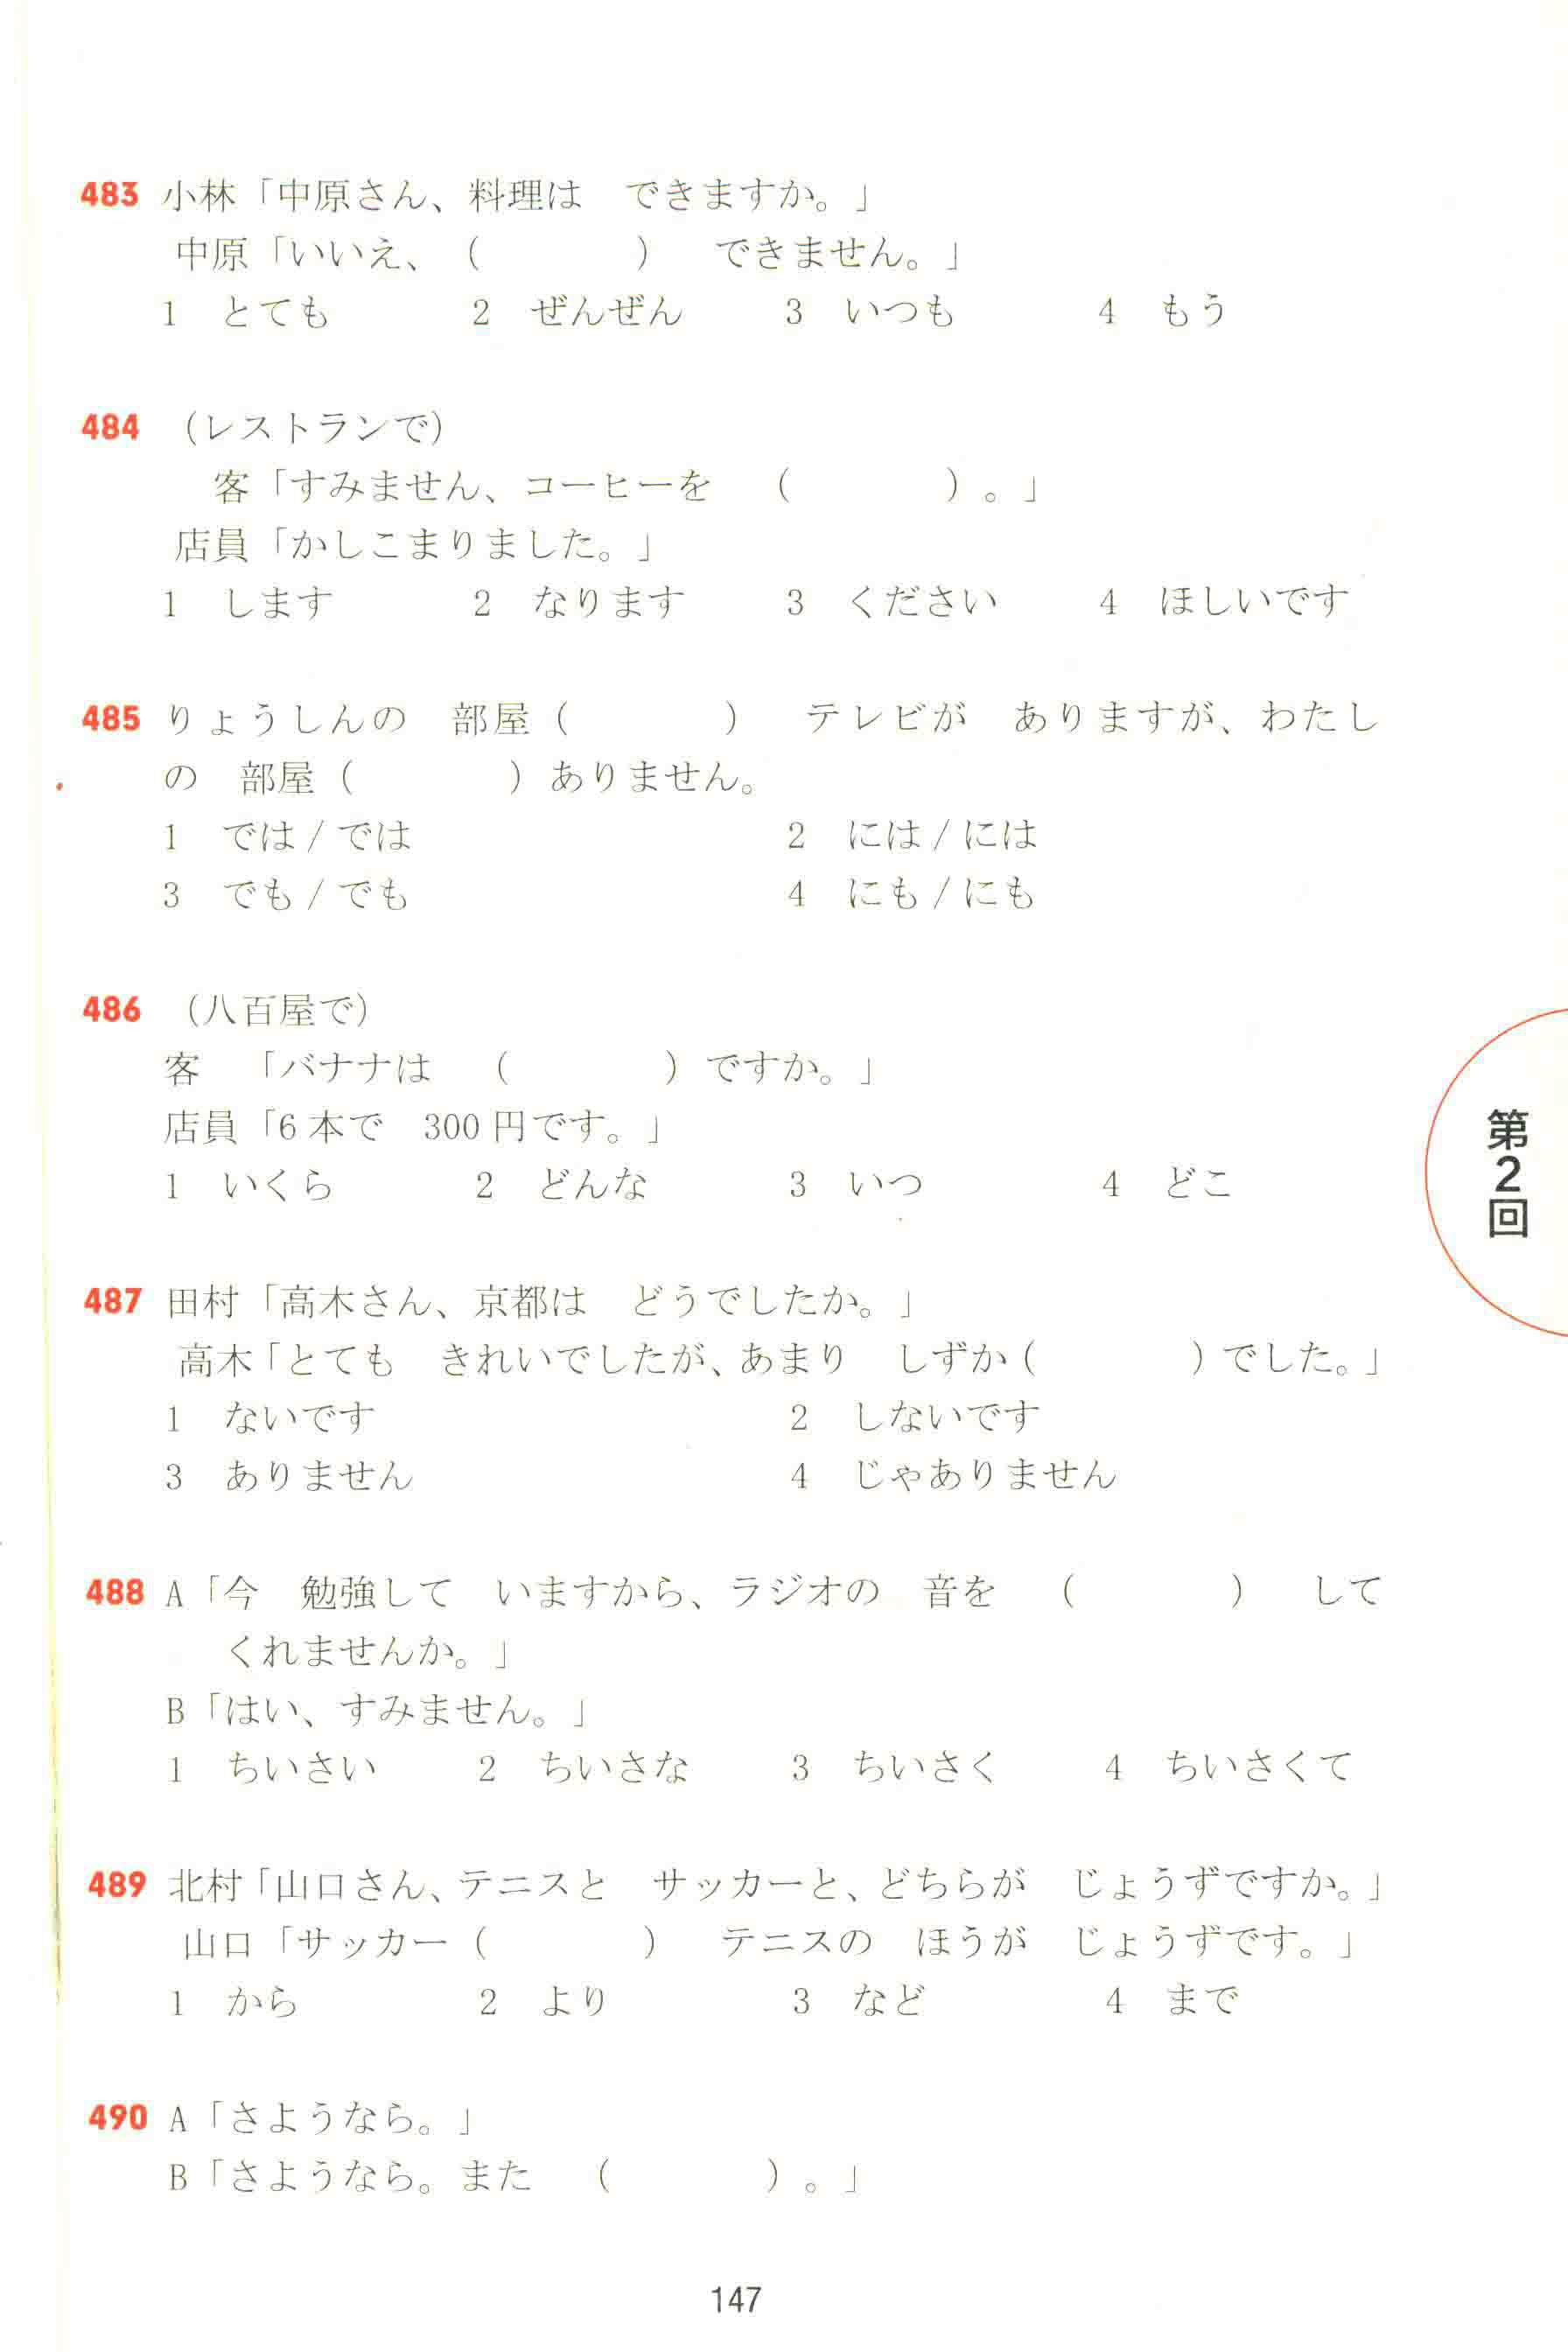 483 小林「中原さん、料理は できますか。」
中原「いいえ、（　　　） できません。」
1 とても　2 ぜんぜん　3 いつも　4 もう
484 （レストランで）
客「すみません、コーヒーを （　　　）。」
店員「かしこまりました。」
1 します　2 なります　3 ください　4 ほしいです
485 りょうしんの 部屋（　　　） テレビが ありますが、わたし
の 部屋（　　　）ありません。
1 では/では　2 には/には
3 でも/でも　4 にも/にも
486 （八百屋で）
客 「バナナは （　　　）ですか。」
店員「6本で 300円です。」
1 いくら　2 どんな　3 いつ　4 どこ
487 田村「高木さん、京都は どうでしたか。」
高木「とても きれいでしたが、あまり しずか（　　　）でした。」
1 ないです　2 しないです
3 ありません　4 じゃありません
488 A「今 勉強して いますから、ラジオの 音を （　　　） して
くれませんか。」
B「はい、すみません。」
1 ちいさい　2 ちいさな　3 ちいさく　4 ちいさくて
489 北村「山口さん、テニスと サッカーと、どちらが じょうずですか。」
山口「サッカー（　　　） テニスの ほうが じょうずです。」
1 から　2 より　3 など　4 まで
490 A「さようなら。」
B「さようなら。また （　　　）。」
第2回
147